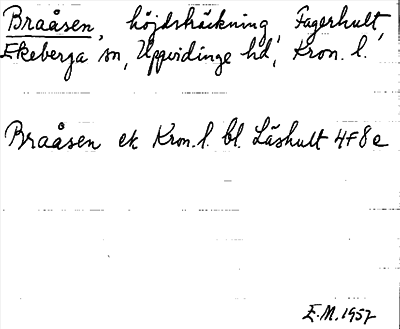 Braåsen, höjdsträckning, Fagerhult,
Ekeberga sn, Uppvidinge hd, Kron. l.
Braåsen ek Kron. l. bl. Läshult 4F8e
E.M. 1957